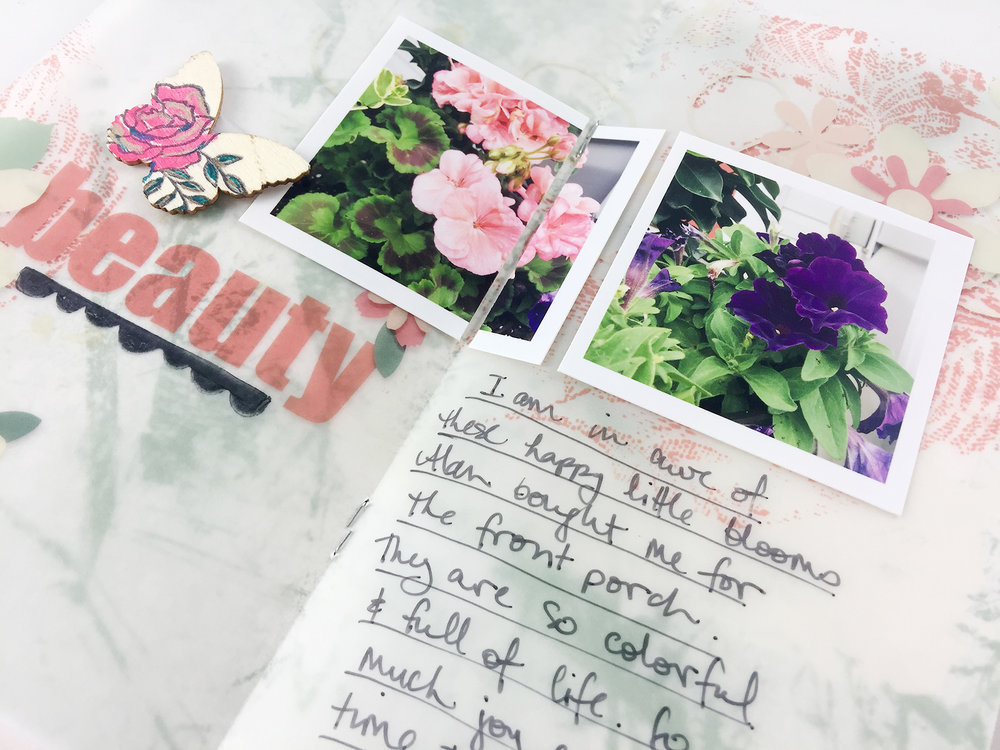 beauty
I am in awe of
these happy little blooms
Alan bought me for
the front porch.
They are so colorful
& full of life. So
much joy
time